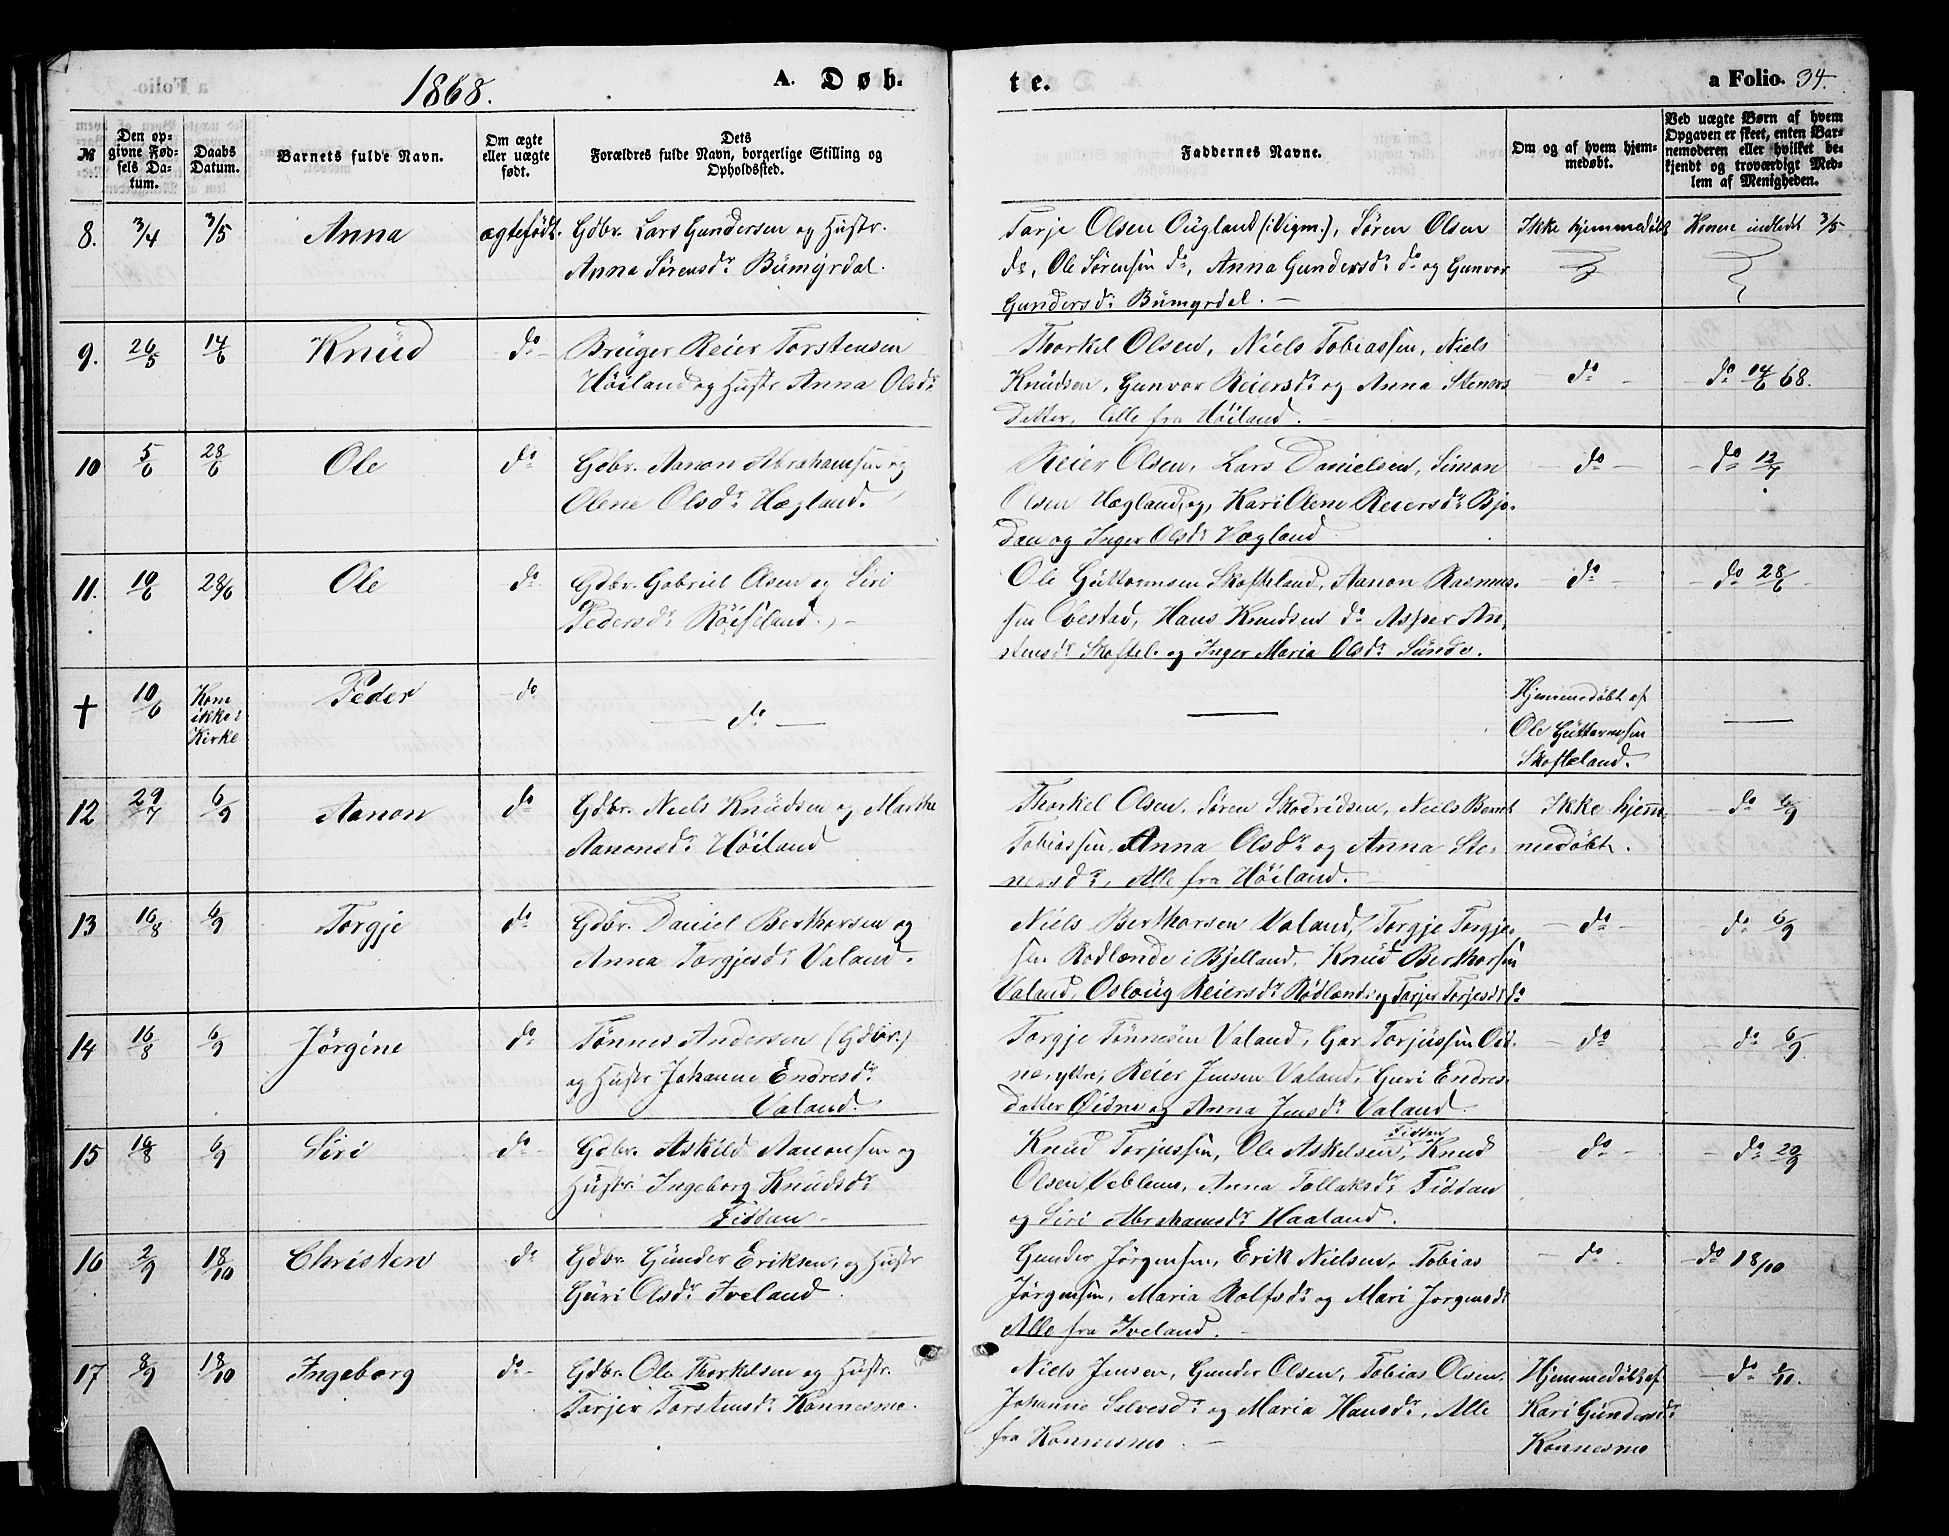 1868.
A. Døb-
te.
a Folio. 34.
№
Den op-
givne Fød-
sels Da-
tum.
Daabs
Datum.
Barnets fulde Navn.
Om ægte
eller uægte
født.
Dets
Forældres fulde Navn, borgerlige Stilling og
Opholdssted.
Faddernes Navne.
Om og af hvem hjem-
medøbt.
Ved uægte Børn af hvem
Opgaven er skeet, enten Bar-
nemoderen eller hvilket be-
kjendt og troværdigt Med-
lem af Menigheden.
8. 3/4 3/5 Anna ægtefødt.
Gdbr. Lars Gundersen og Hustr.
Anna Sørensdr Bümyrdal.
Tarje Olsen Øügland (i Vigm.), Søren Olsen
do, Ole Sørensen do, Anna Gundersdr do og Gunvor
Gundersdr Bümyrdal. —
Ikke hjemmedøbt
Konen indledt 3/5
9. 26/5 14/6 Knüd do
Brüger Reier Torstensen
Höiland og Hustr Anna Olsdr
Thorkel Olsen, Niels Tobiassen, Niels
Knüdsen, Gunvor Reiersdr og Anna Steners
datter, Alle fra Höiland.
do
do 14/6 68.
10 5/6 28/6 Ole do
Gdbr. Aanon Abrahamsen og
Olene Olsdr Hægland.
Reier Olsen, Lars Danielsen, Simon
Olsen Hægland, og, Kari Olene Reiersdr Bjo-
dau og Inger Olsdr Hægland
do
do 12/7
11. 10/6 28/6 Ole do
Gdbr. Gabriel Olsen og Siri
Pedersdr Röiseland.
Ole Güttormsen Skofteland, Aanon Rasmus-
sen Obestad, Hans Knudsen do Asper An-
stensdr Skoftel. og Inger Maria Olsdr Sünde.
do
do 28/6
† 10/6
Kom
ikke i
Kirke
Peder do
— do —
Hjemmedøbt af
Ole Güttormsen
Skofteland.
12 29/7 6/9 Aanon do
Gdbr. Niels Knüdsen og Marthe
Aanonsdr Höiland
Thorkel Olsen, Søren Skodvidsen, Niels Bernt
Tobiassen, Anna Olsdr og Anna Ste-
nersdr, Alle fra Höiland.
Ikke hjem-
medøbt.
do 6/9
13 16/8 6/9 Torgje do
Gdbr. Daniel Berthorsen og
Anna Torgjesdr Valand.
Niels Berthorsen Valand, Torgje Torgje-
sen Rodlende i Bjelland, Knüd Berthorsen
Valand, Osloüg Reiersdr Rödland og Torjer Torjesdr do
do
do 6/9
14 16/8 6/9 Jörgine do
Tönnes Andersen (Gdbr.)
og Hustr Johanne Endresdr
Valand.
Torgje Tönnesen Valand, Gar Torjüssen Öid-
ne, yttre, Reier Jensen Valand, Guri Endres-
datter Öidne og Anna Jensdr Valand.
do
do 6/9
15 16/8 6/9 Siri do
Gdbr. Askild Aanonsen og
Hustr. Ingeborg Knüdsdr
Fiddan
Fiddan
Knüd Torjussen, Ole Askelsen, Knud
Olsen Veblens, Anna Tollaksdr Fiddan
og Siri Abrahamsdr Haaland.
do
do 20/9
16 2/9 18/10 Christen do
Gdbr. Günder Eriksen, og Hustr
Güri Olsdr Iveland
Gunder Jörgensen, Erik Nielsen, Tobias
Jörgensen, Maria Rolfsdr og Mari Jorgensdr
Alle fra Iveland.
do
do 18/10
17 8/9 18/10 Ingeborg do
Gdbr. Ole Thorkelsen og Hustr.
Torjer Torstensdr Konnesmo.
Niels Jensen, Gunder Olsen, Tobias Olsen,
Johanne Salvesdr og Maria Hansdr, Alle
fra Konnesmo. —
Hjemmedøbt af
Kari Gündersdr
Konnesmo
do